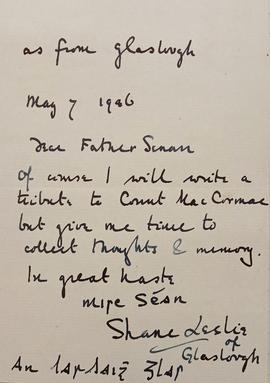 as from Glaslough
May 7 1946
Dear Father Senan
Of course I will write a
tribute to Count MacCormac
but give me time to
collect thoughts & memory.
In great haste
mise Seán
Shane Leslie
of
Glaslough